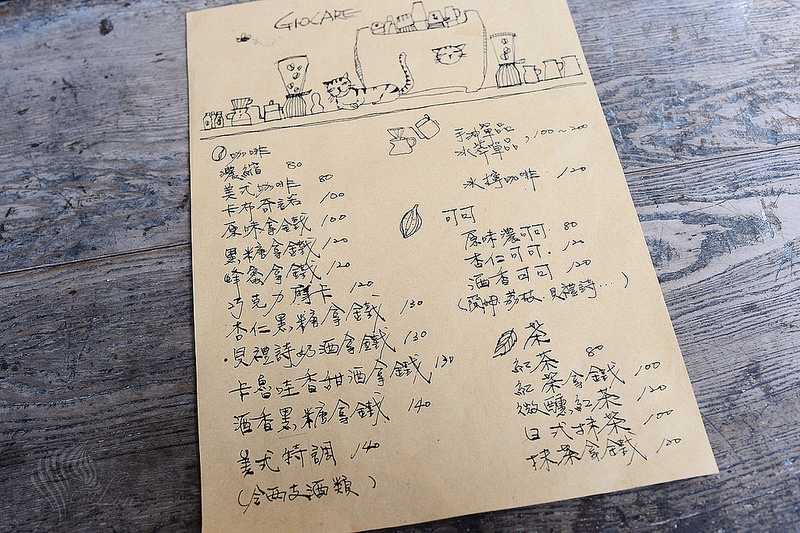 GIOCARE
咖啡
濃縮 80
美式咖啡 80
卡布奇諾 100
原味拿鐵 100
黑糖拿鐵 120
蜂蜜拿鐵 120
巧克力摩卡 120
杏仁黑糖拿鐵 130
貝禮詩奶酒拿鐵 130
卡魯哇香甜酒拿鐵 130
酒香黑糖拿鐵 140
美式特調 140
(含酒類)
手沖單品
冰單品, 100~200
冰檸咖啡 120
可可
原味濃可可 80
杏仁可可 120
酒香可可 120
(荔枝 貝禮詩...)
茶
紅茶 80
紅茶拿鐵 100
微醺紅茶 120
日式抹茶 100
抹茶拿鐵 120